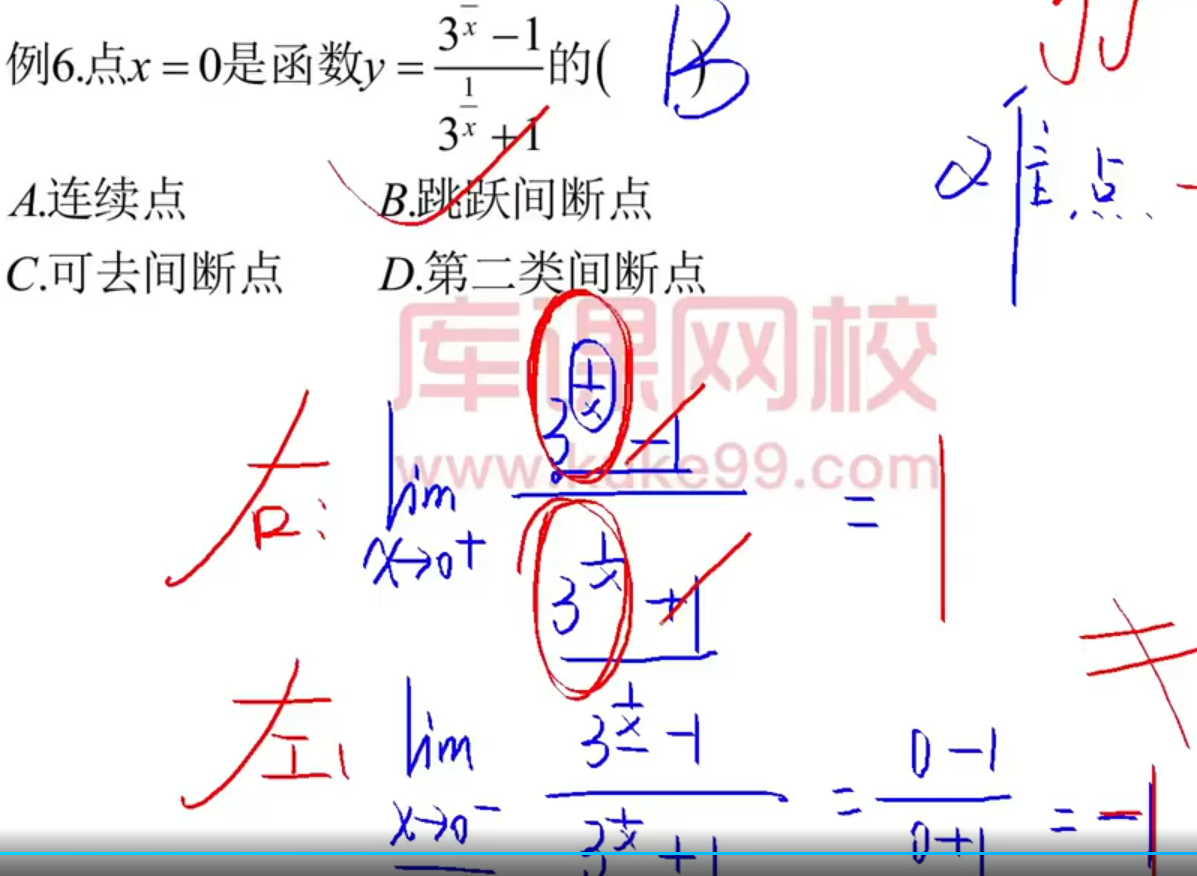 例6.点x = 0是函数y = (3^(1/x) − 1)/(3^(1/x) + 1)的( B )
A.连续点 B.跳跃间断点
C.可去间断点 D.第二类间断点
2难点
库课网校
www.kuke99.com
右: lim x→0⁺ (3^(1/x) − 1)/(3^(1/x) + 1) = 1
≠
左: lim x→0⁻ (3^(1/x) − 1)/(3^(1/x) + 1) = (0 − 1)/(0 + 1) = −1